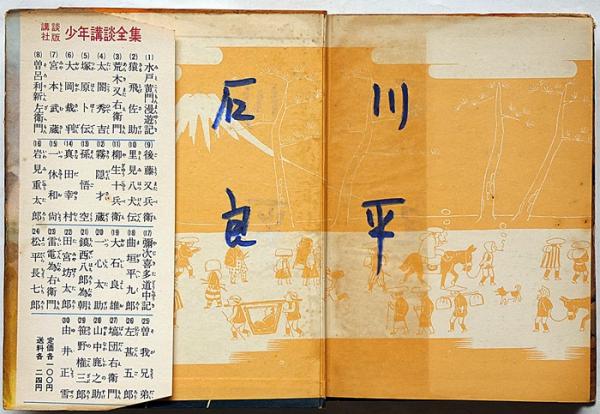 講談社版 少年講談全集
(1) 水戸黄門漫遊記
(2) 猿飛佐助
(3) 荒木又右衛門
(4) 太閤秀吉
(5) 塚原卜伝
(6) 大岡裁判
(7) 宮本武蔵
(8) 曽呂利新左衛門
(9) 後藤又兵衛
(10) 里見八犬伝
(11) 柳生十兵衛
(12) 霧隠才蔵
(13) 孫悟空
(14) 真田幸村
(15) 一休和尚
(16) 岩見重太郎
(17) 彌次喜多道中記
(18) 曲垣平九郎
(19) 大石良雄
(20) 一心太助
(21) 鎮西八郎為朝
(22) 田宮坊太郎
(23) 雷電為右衛門
(24) 松平長七郎
(25) 曽我兄弟
(26) 左甚五郎
(27) 塙団右衛門
(28) 山中鹿之助
(29) 笹野権三郎
(30) 由井正雪
定価各一〇〇円
送料各二四円
石川
良平